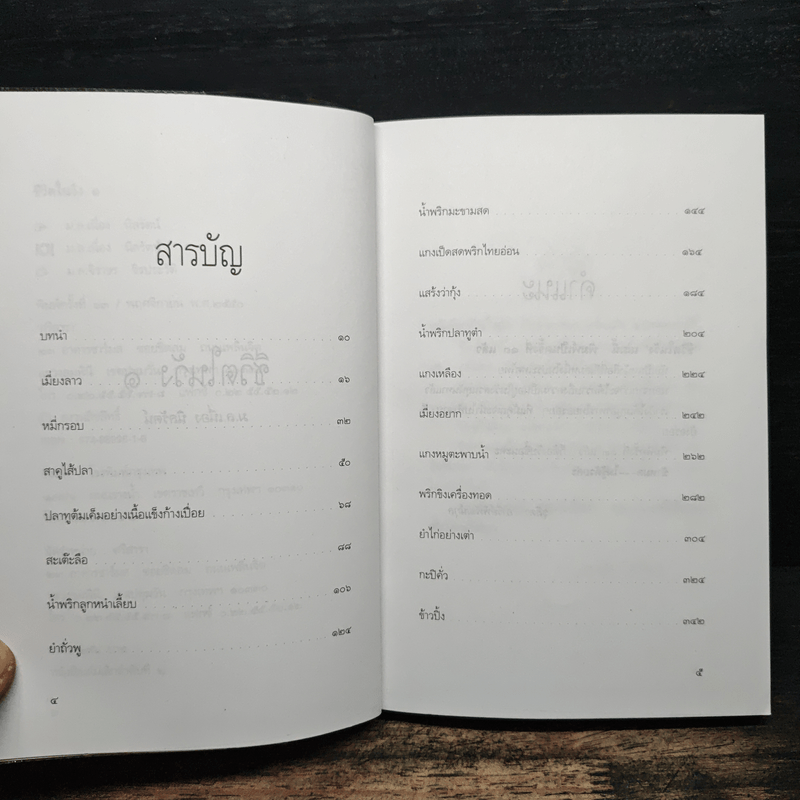 สารบัญ
บทนำ ๑๐
เมี่ยงลาว ๑๖
หมี่กรอบ ๓๒
สาคูไส้ปลา ๕๐
ปลาทูต้มเค็มอย่างเนื้อแข็งก้างเปื่อย ๖๘
สะเต๊ะลือ ๘๘
น้ำพริกลูกหนำเลี้ยบ ๑๐๖
ยำถั่วพู ๑๒๔
๔
น้ำพริกมะขามสด ๑๔๔
แกงเป็ดสดพริกไทยอ่อน ๑๖๔
แสร้งว่ากุ้ง ๑๘๔
น้ำพริกปลาทูตำ ๒๐๔
แกงเหลือง ๒๒๔
เมี่ยงอยาก ๒๔๒
แกงหมูตะพาบน้ำ ๒๖๒
พริกขิงเครื่องทอด ๒๘๒
ยำไก่อย่างเต่า ๓๐๔
กะปิคั่ว ๓๒๔
ข้าวปิ้ง ๓๔๒
๕